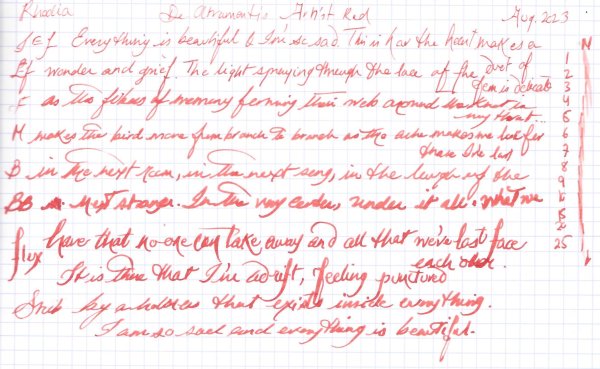 Rhodia De Atramentis Artist Red Aug. 2023
EF Everything is beautiful & I'm so sad. This is how the heart makes a
EF wonder and grief. The light spraying through the lace of the fern is delicate
duet of
F as the fibers of memory forming their web around the knot in
my throat...
M makes the bird move from branch to branch as the ache makes me look for
those I've lost
B in the next room, in the next song, in the laugh of the
BB next stranger. In the very center, under it all, what we
flux have that no one can take away and all that we've lost face
each other.
It is there that I'm adrift, feeling punctured
Stub by a holiness that exists inside everything.
I am so sad and everything is beautiful.
N
1
2
3
4
5
6
7
8
9
10
15
20
25